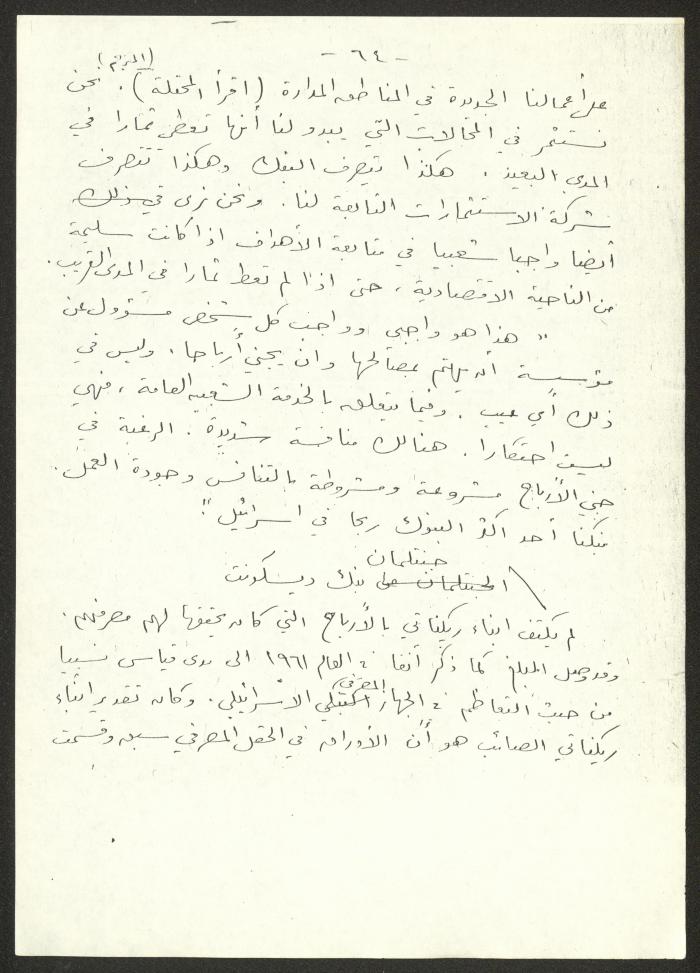 - ٦٤ -
(المترجم)
على أعمالنا الجديدة في المناطق المدارة (اقرأ المحتلة). نحن
نستثمر في المجالات التي يبدو لنا أنها تعطي ثمارا في
المدى البعيد. هكذا يتصرف البنك وهكذا تتصرف
شركة الاستثمارات التابعة لنا. ونحن نرى في ذلك
أيضا واجبا شعبيا في متابعة الأهداف اذا كانت سليمة
من الناحية الاقتصادية، حتى اذا لم تعط ثمارا في المدى القريب.
" هذا هو واجبي وواجب كل شخص مسؤول عن
مؤسسة أن يهتم بمصالحها وان يجني أرباحا. وليس في
ذلك أي عيب. وفيما يتعلق بالخدمة الشعبية العامة، فهي
ليست احتكارا. هنالك منافسة شديدة. الرغبة في
جني الأرباح مشروعة ومشروطة بالتنافس وجودة العمل.
بنكنا أحد اكثر البنوك ربحا في اسرائيل".
جنتلمان
الجنتلمان من بنك ديسكونت
لم يكتف ابناء ريكناتي بالأرباح التي كان يحققها لهم مصرفهم.
وقد وصل المبلغ كما ذكر آنفا في العام ١٩٦١ الى مدى قياسي نسبيا
من حيث التعاظم في الجهاز المصرفي الاسرائيلي. وكان تقدير ابناء
ريكناتي الصائب هو أن الأوراق في الحقل المصرفي سبق وقسمت